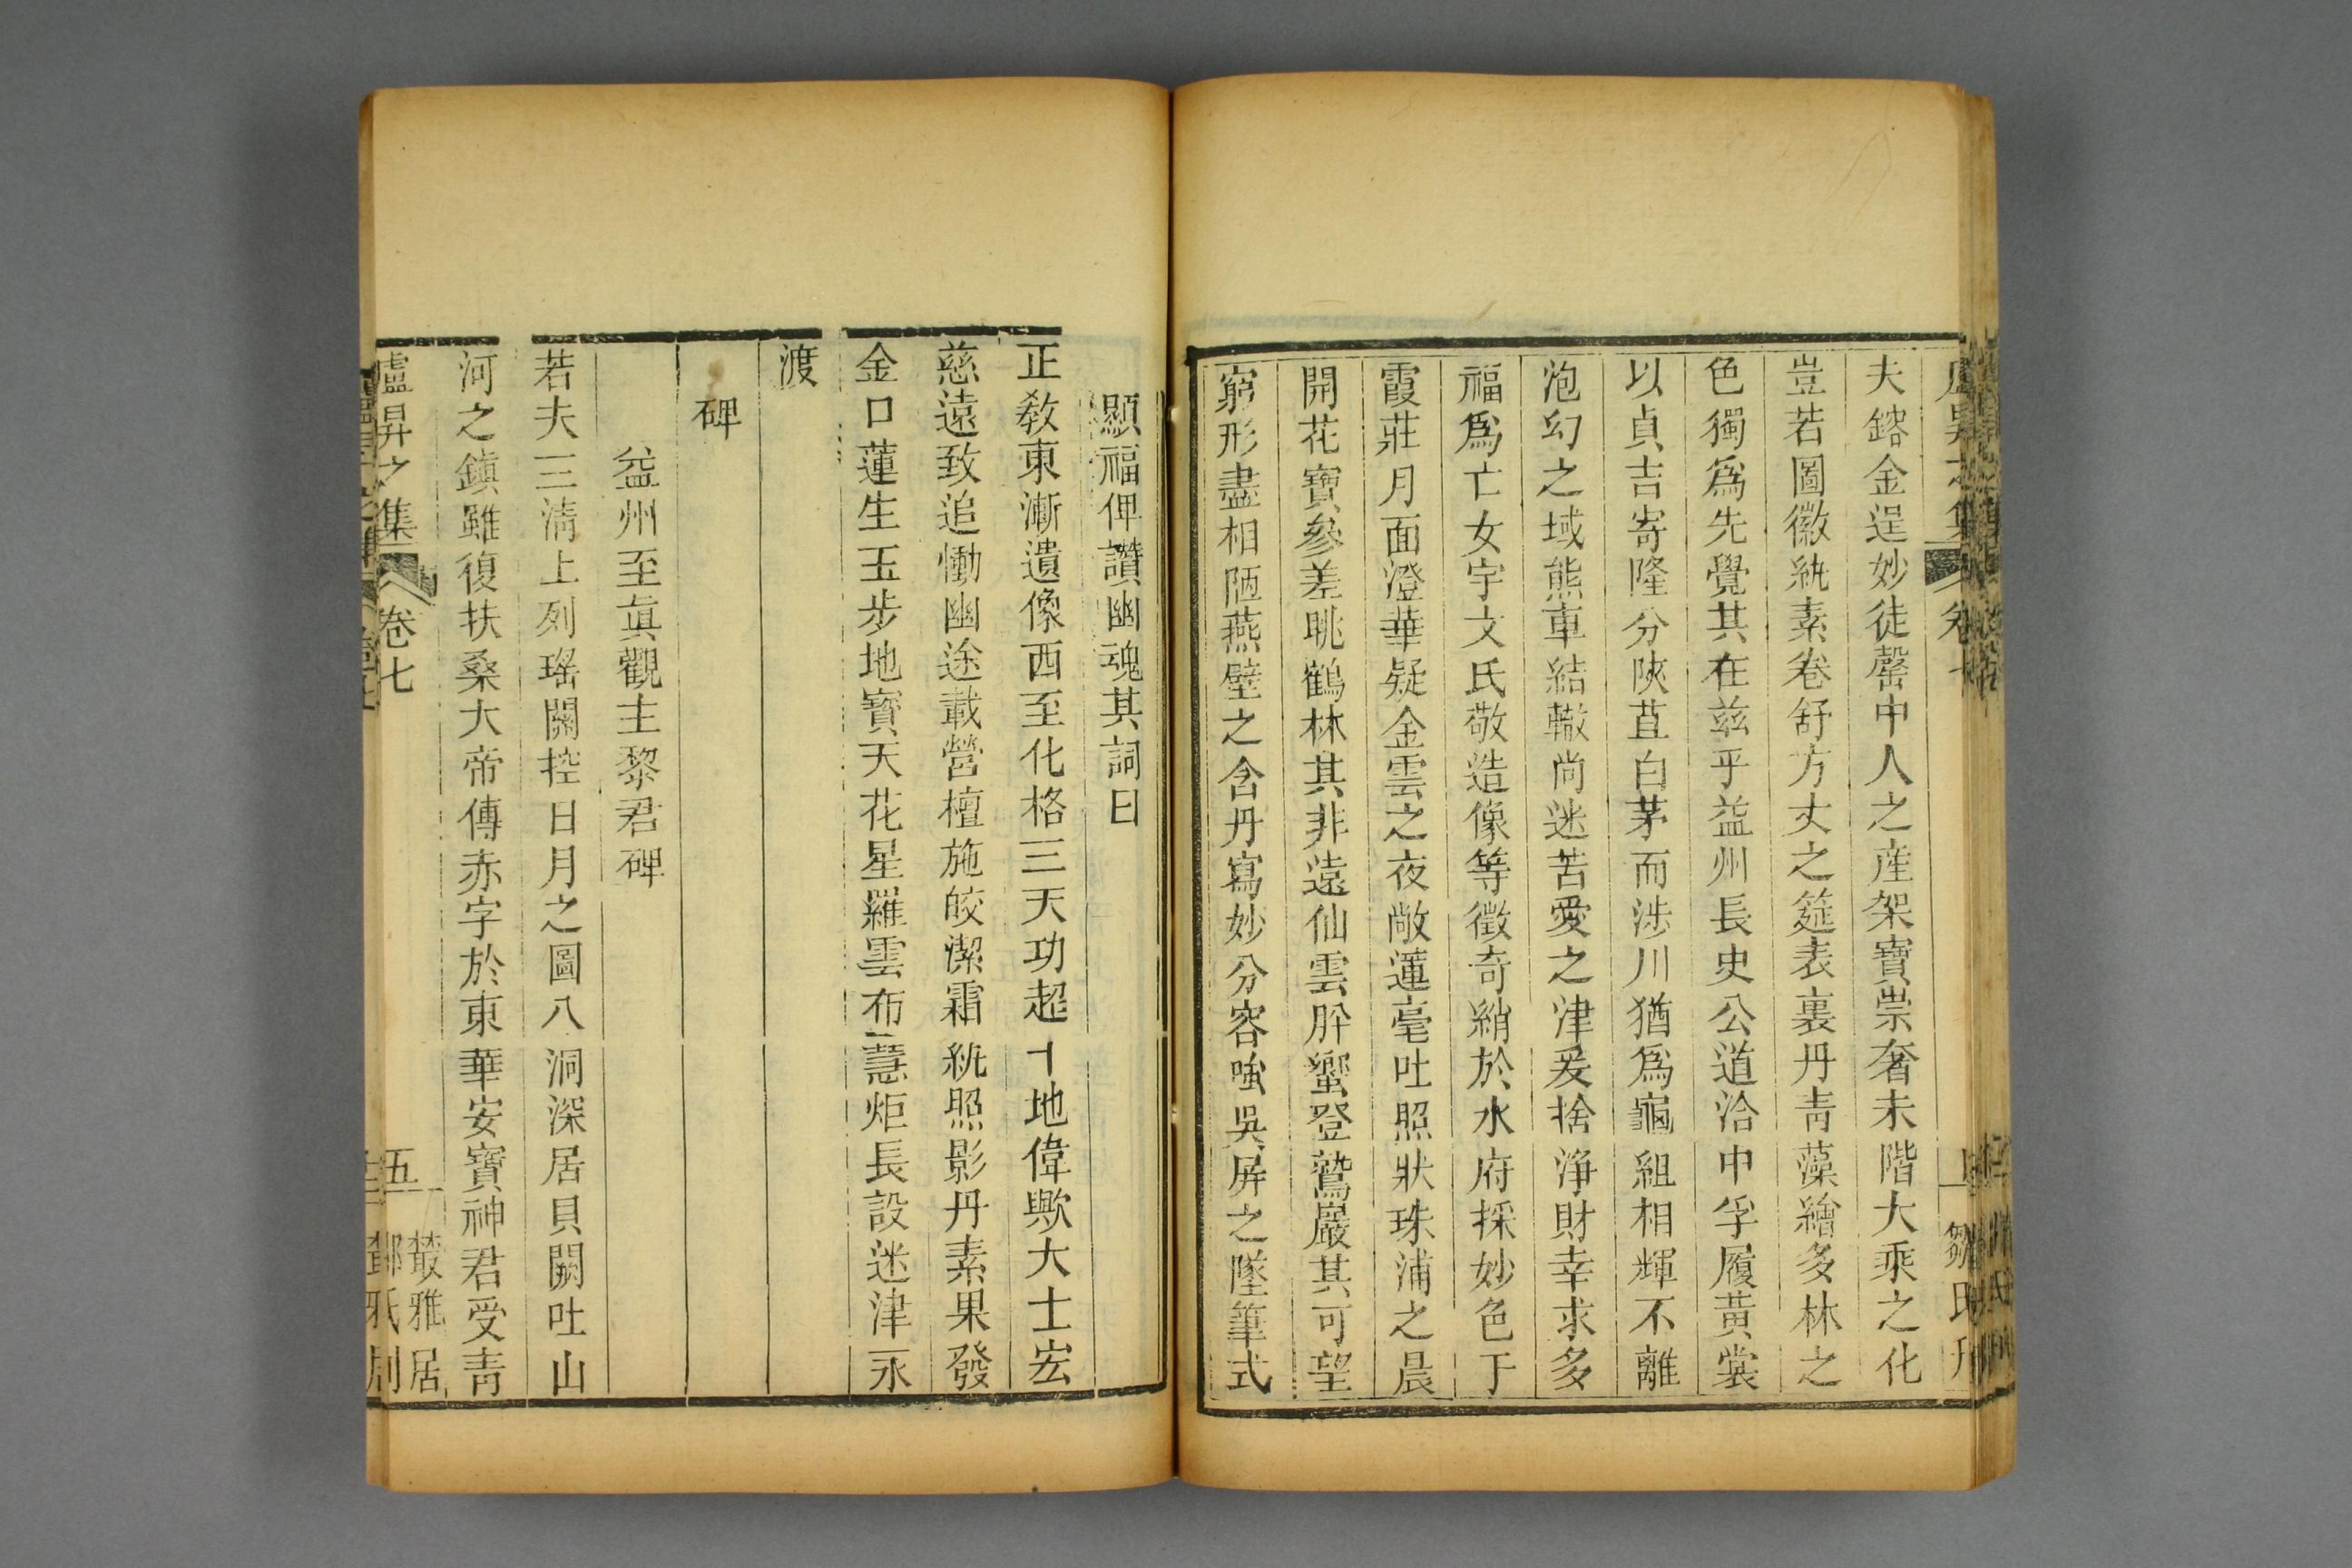 夫鎔金逞妙徒罄中人之産架寶崇奢未階大乘之化
豈若圖徽紈素卷舒方丈之筵表裏丹靑藻繪多林之
色獨爲先覺其在茲乎益州長史公道洽中孚履黃裳
以貞吉寄隆分陝苴白茅而涉川猶爲龜組相輝不離
泡幻之域熊車結轍尚迷苦愛之津爰捨淨財幸求多
福爲亡女宇文氏敬造像等徵奇綃於水府採妙色于
霞莊月面澄華疑金雲之夜敞蓮毫吐照狀珠浦之晨
開花寶參差眺鶴林其非遠仙雲肸蠁登鷲巖其可望
窮形盡相陋燕壁之含丹寫妙分容嗤吳屏之墜筆式
顯福俾讚幽魂其詞曰
正敎東漸遺像西至化格三天功超十地偉歟大士宏
慈遠致追慟幽途載營檀施皎潔霜紈照影丹素果發
金口蓮生玉步地寶天花星羅雲布慧炬長設迷津永
渡
碑
益州至眞觀主黎君碑
若夫三淸上列瑤關控日月之圖八洞深居貝闕吐山
河之鎭雖復扶桑大帝傳赤字於東華安寶神君受靑
盧昇之集 卷七 五 叢雅居
鄒氏刊